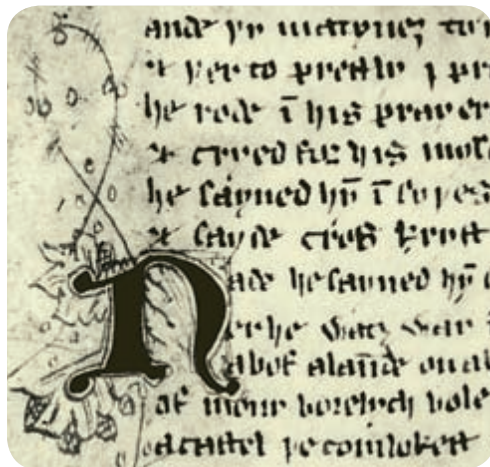 ande þy matyneȝ to
& þer to prestly I pr
he rode ī his prayer
& cryed for his
he sayned hȳ ī syþes
& sayde cros kryst
Nade he sayned hȳ
er he watȝ war
abof a laūde on a
of mony borelych bole
a castel þe comlokest